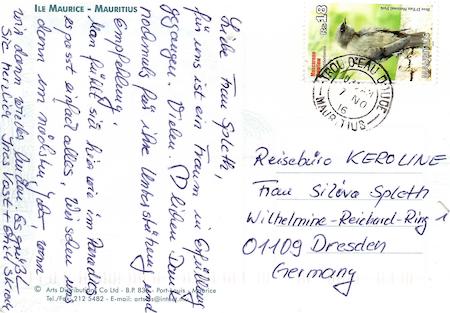 ILE MAURICE - MAURITIUS
Liebe Frau Spleth,
für uns ist ein Traum in Erfüllung
gegangen. Vielen lieben Dank
nochmals für Ihre Unterstützung und
Empfehlung.
Man fühlt sich hier wie im Paradies,
es passt einfach alles. Wir sehen uns
dann im nächsten Jahr, wenn
wir dann wieder buchen. Es grüßt
Sie herzlich Ines
© Arts Distribution Co Ltd - B.P. - Port Louis - Maurice
Tel./Fax: 212 5482 - E-mail:
Rs 18
TROU D'EAU DOUCE
7 NO
16
MAURITIUS
Reisebüro KEROLINE
Frau Silova Spleth
Wilhelmine-Reichard-Ring 1
01109 Dresden
Germany